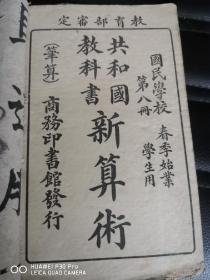 教育部審定
國民學校 春季始業
第八冊 學生用
共和國
教科書
新算術
(筆算)
商務印書館發行
HUAWEI P30 Pro
LEICA TRIPLE CAMERA